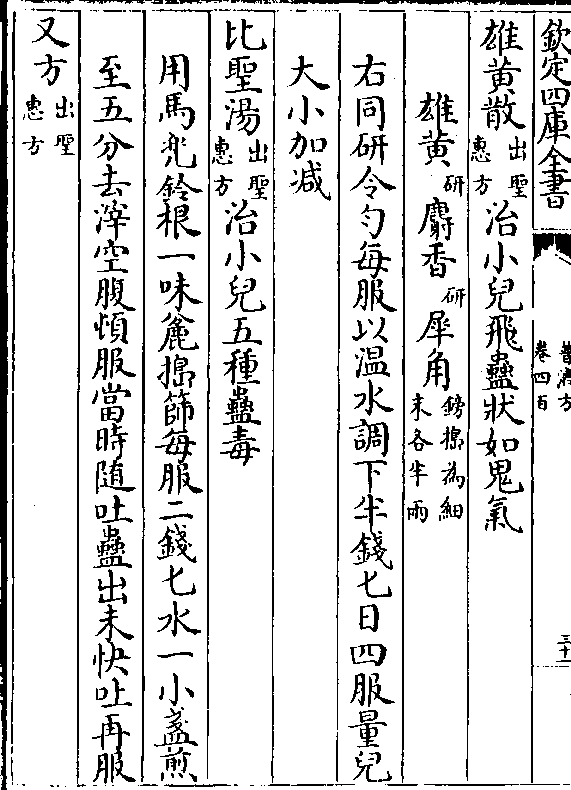 欽定四庫全書
普濟方
卷四百
三十一
雄黄散出聖惠方治小兒飛蠱狀如鬼氣
雄黄研麝香研犀角鎊擣為細末各半兩
右同研令勻每服以温水調下半錢匕日四服量兒
大小加减
比聖湯出聖惠方治小兒五種蠱毒
用馬兜鈴根一味麄擣篩每服二錢匕水一小盞煎
至五分去滓空腹頓服當時隨吐蠱出未快吐再服
又方出聖惠方